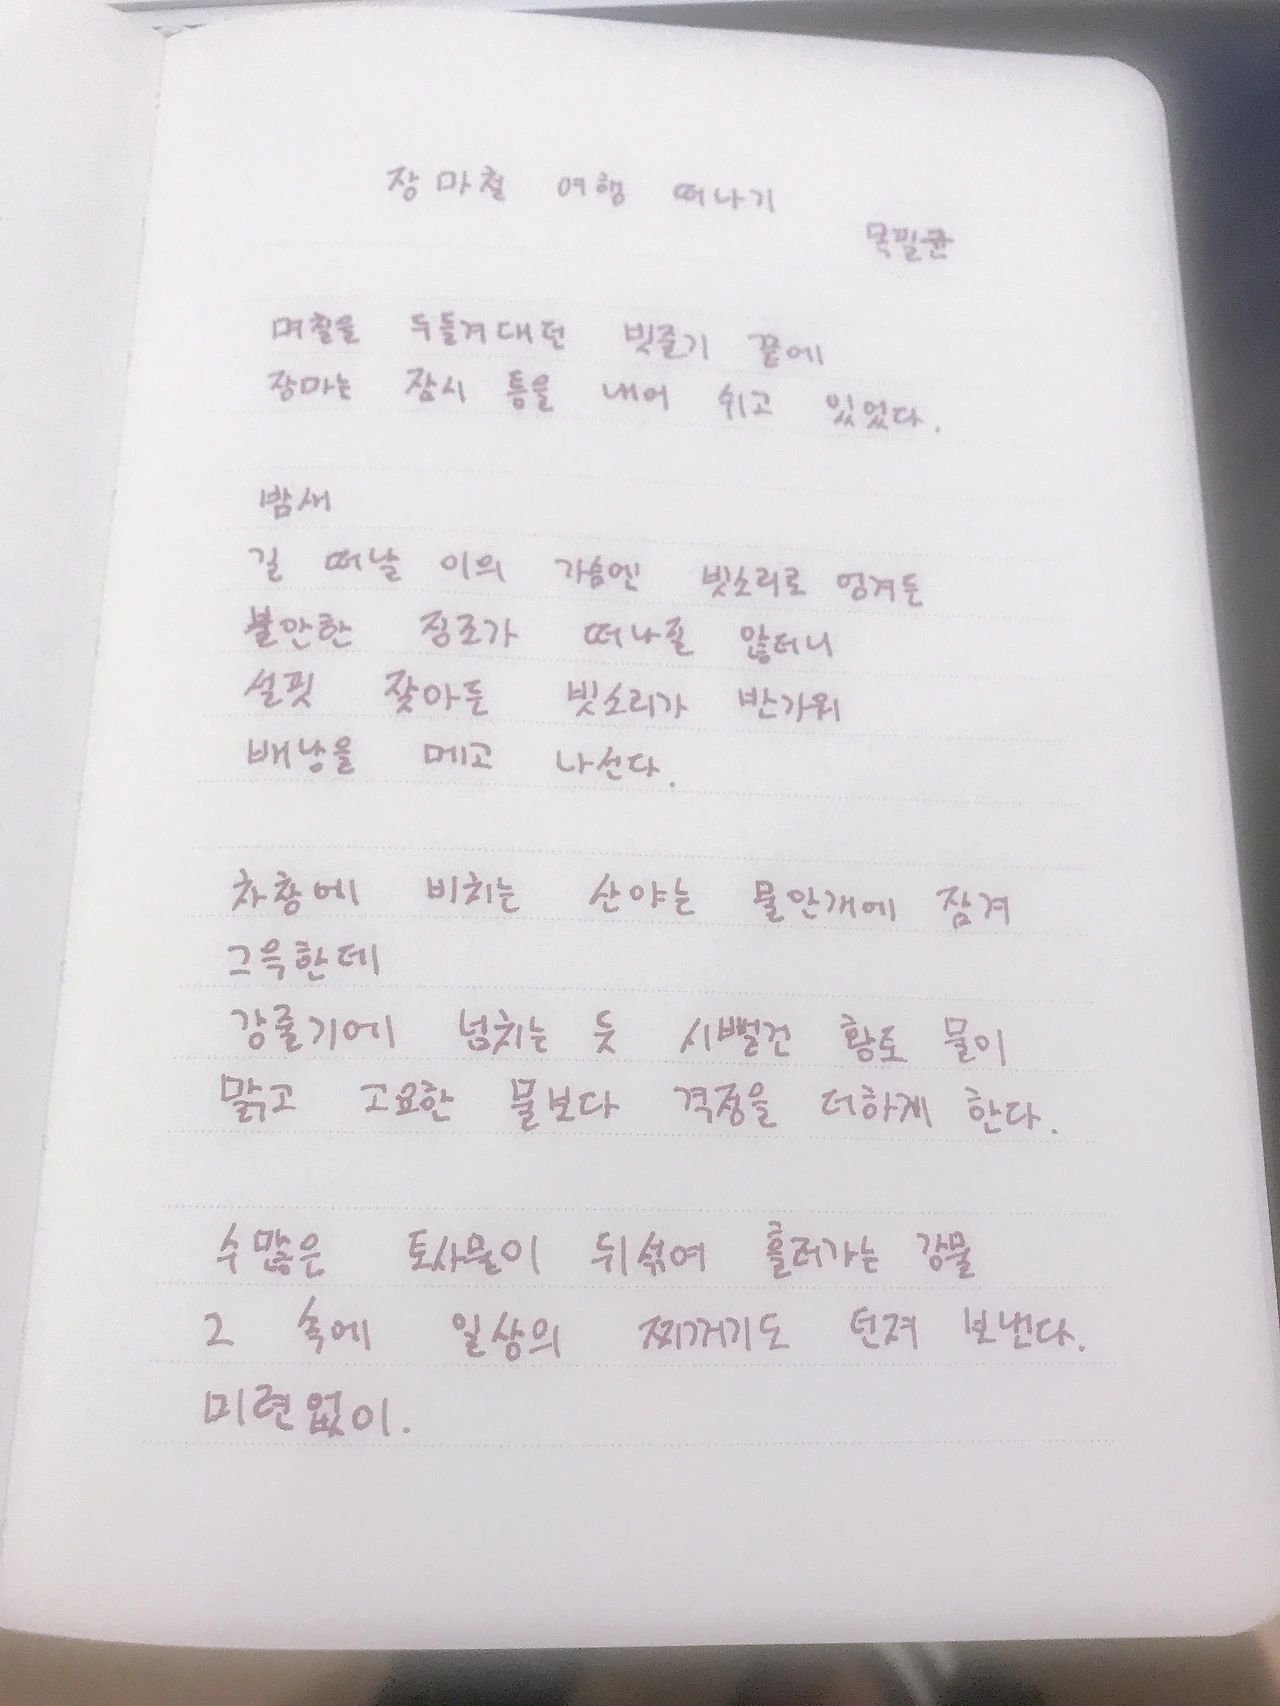 장마철 여행 떠나기
목필균
며칠을 두들겨대던 빗줄기 끝에
장마는 잠시 틈을 내어 쉬고 있었다.
밤새
길 떠날 이의 가슴엔 빗소리로 엉겨든
불안한 징조가 떠나질 않더니
설핏 잦아든 빗소리가 반가워
배낭을 메고 나선다.
차창에 비치는 산야는 물안개에 잠겨
그윽한데
강줄기에 넘치는 듯 시뻘건 황토 물이
맑고 고요한 물보다 격정을 더하게 한다.
수많은 토사물이 뒤섞여 흘러가는 강물
그 속에 일상의 찌꺼기도 던져 보낸다.
미련없이.